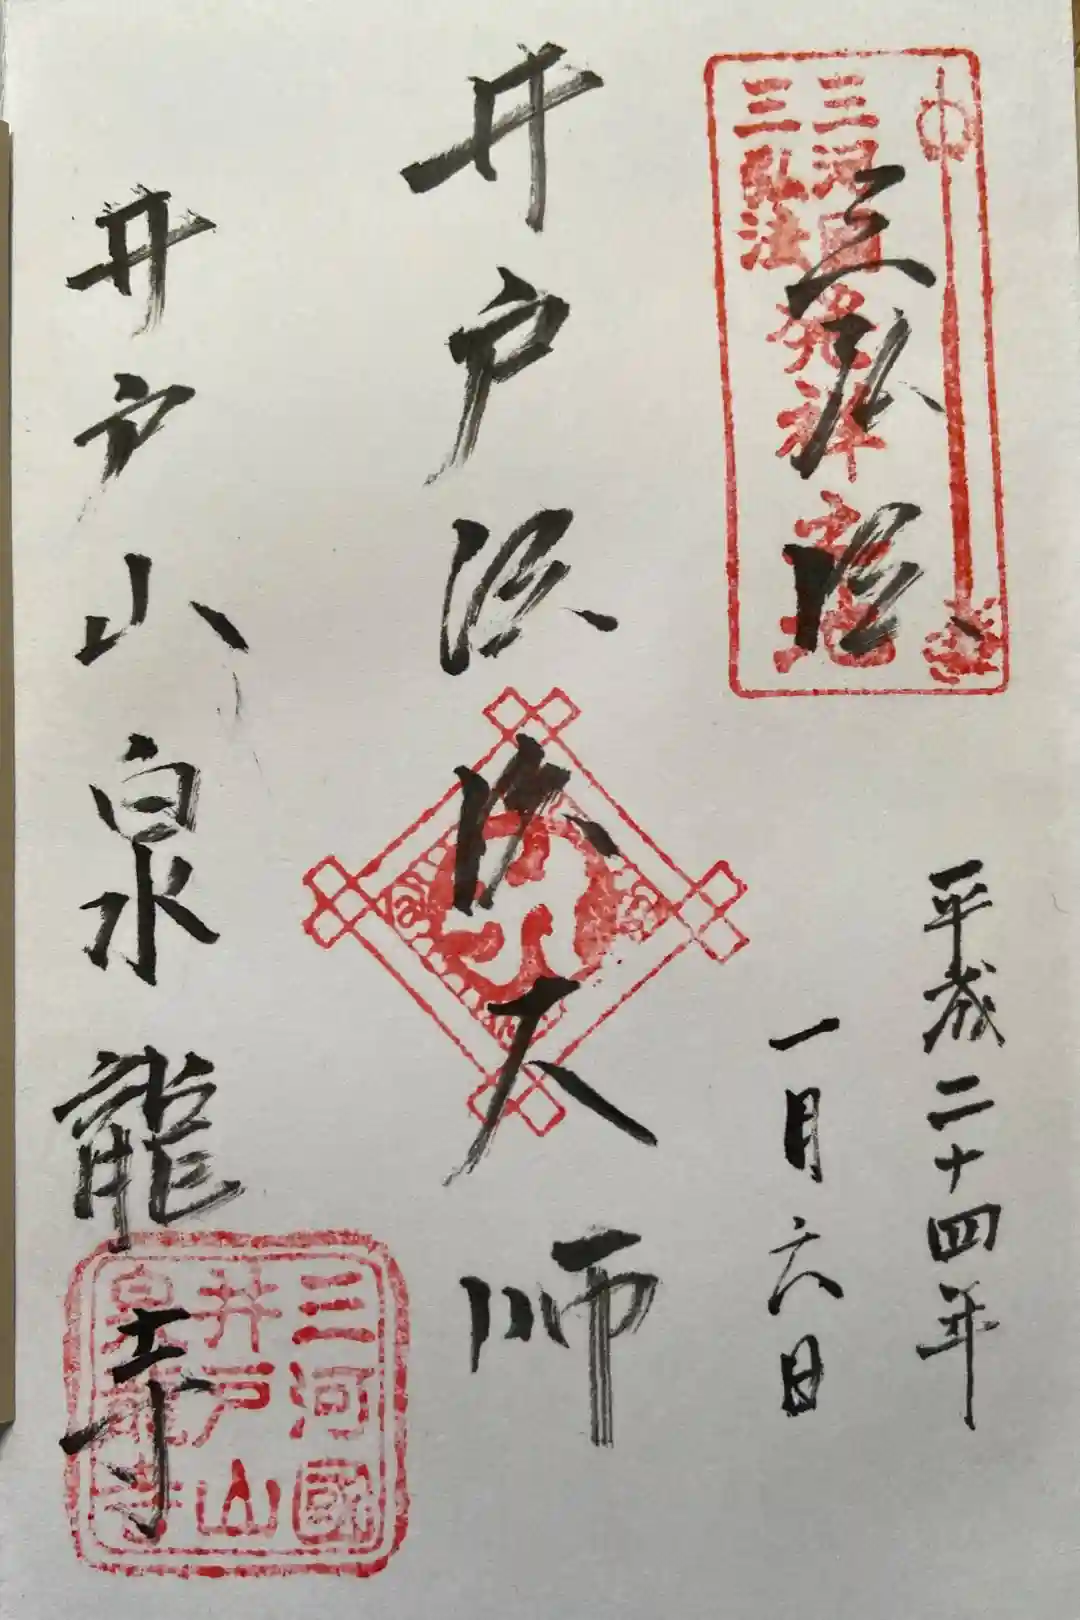 三河國
三弘法
発祥之地
三弘法
平成二十四年
一月六日
井戸弘法大師
井戸山泉龍寺
三河國
井戸山
泉龍寺